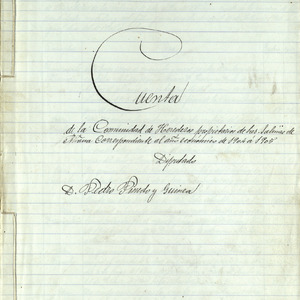 Cuenta
de la Comunidad de Herederos propietarios de las Salinas de
Añana Correspondiente al año económico de 1904 á 1905
Diputado
D. Pedro Pinedo y Guinea